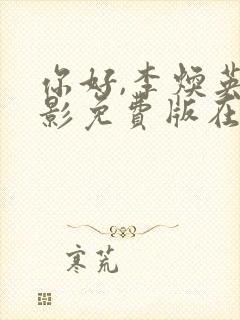 你好,李焕英
影免费版在
寒荒